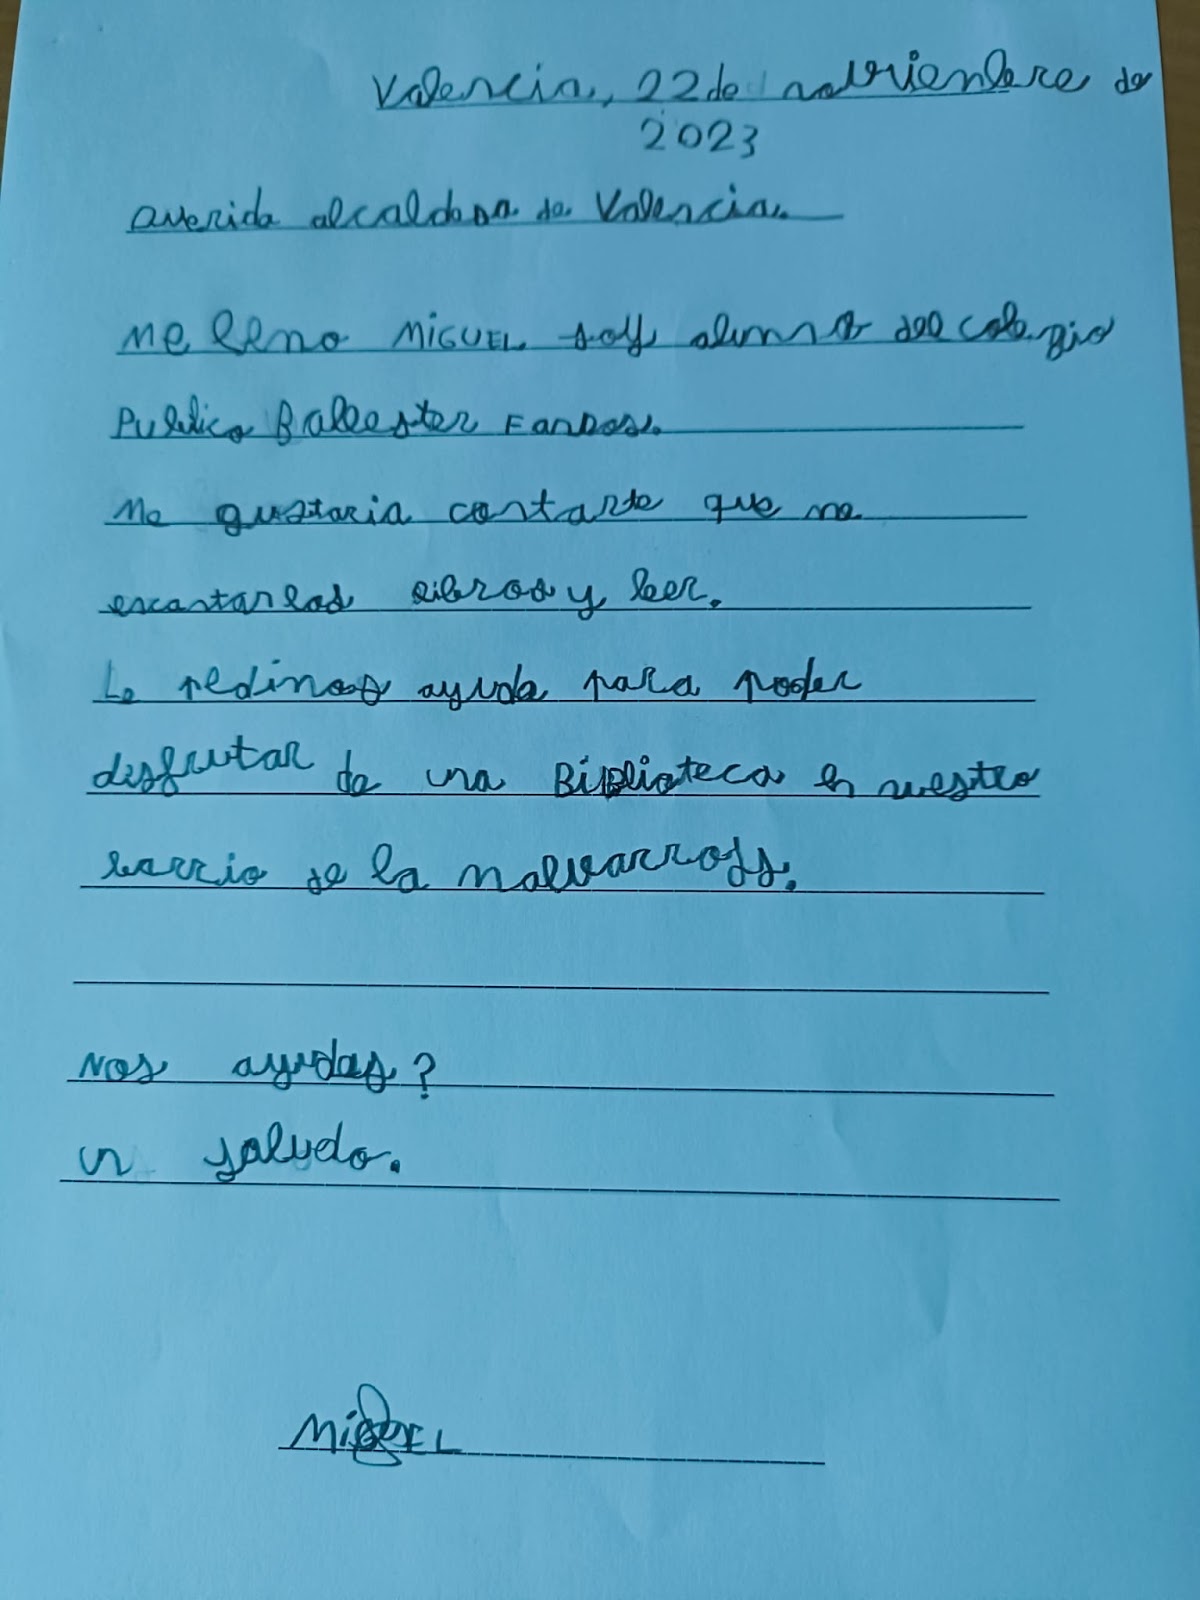 Valencia, 22 de noviembre de
2023
Querida alcaldesa de Valencia.
Me llmo MIGUEL soy alumno del colegio
Publico Ballester Fandos.
Me gustaria contarte que me
encantan los libros y leer.
Le pedimos ayuda para poder
disfrutar de una Biblioteca en nuestro
barrio de la malvarrosa.
Nos ayudas?
un saludo.
MIGUEL